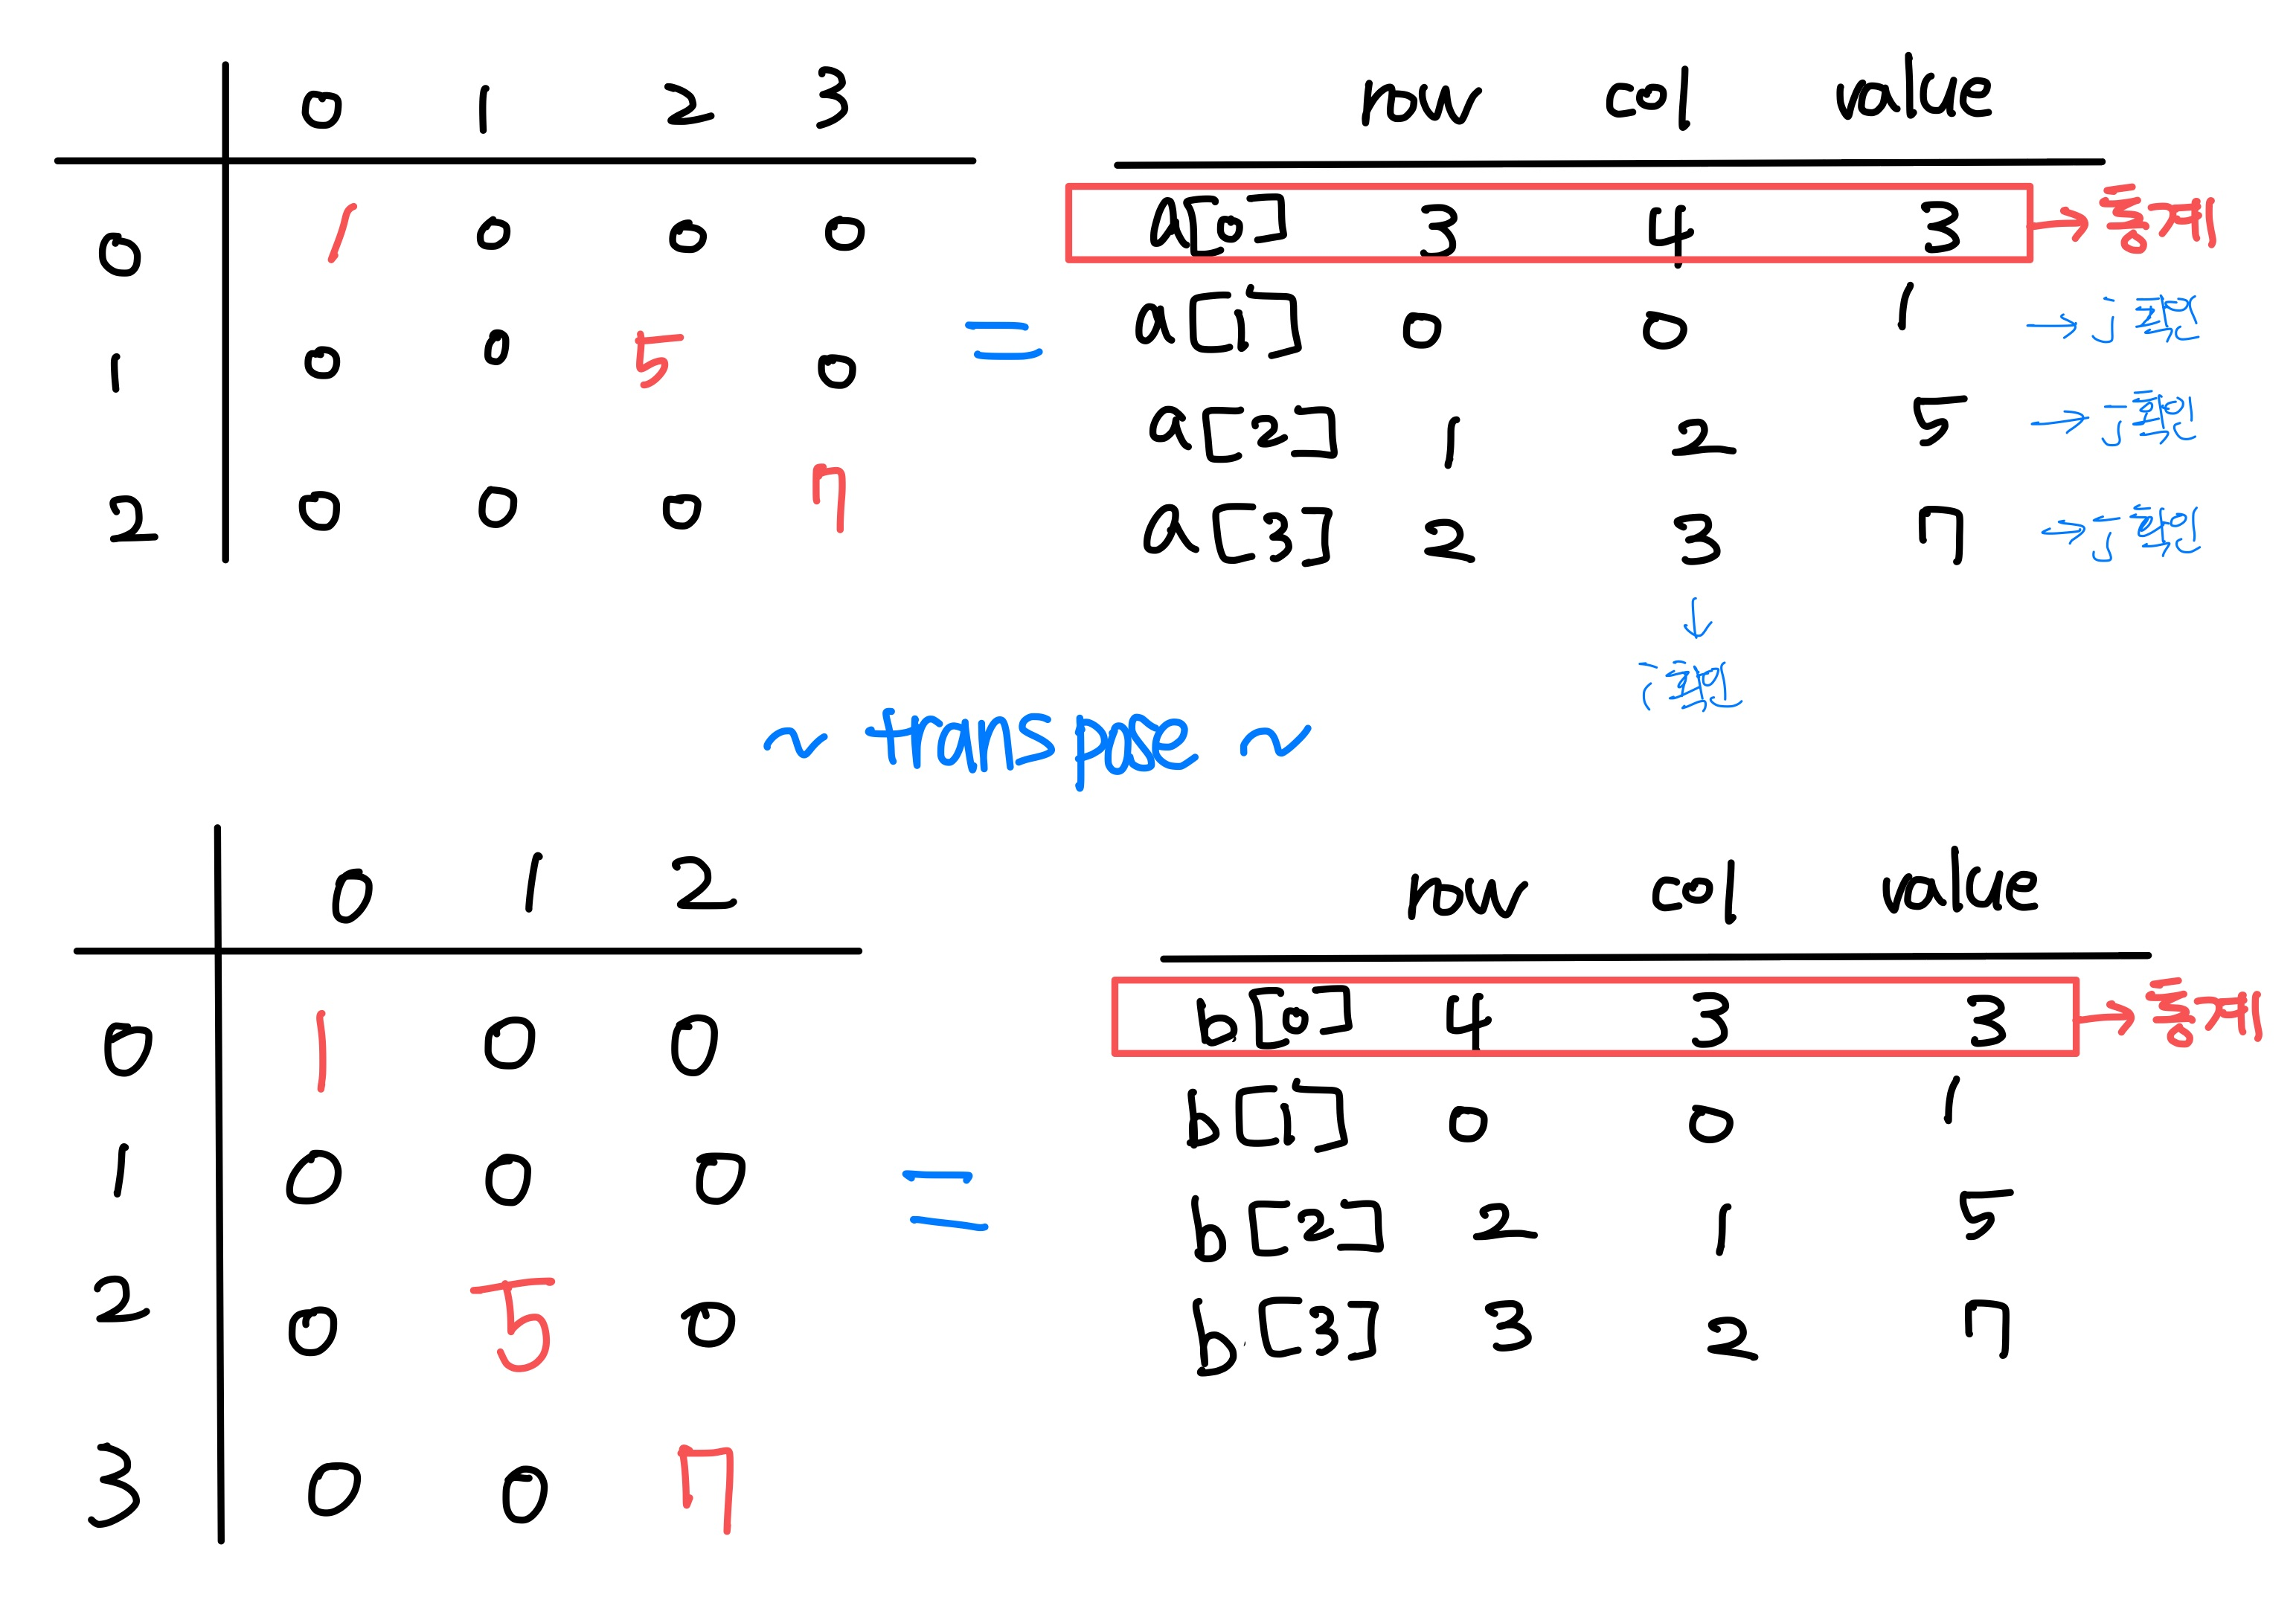 0 1 2 3
0 1 0 0 0
1 0 0 5 0
2 0 0 0 7
=
row col value
a[0] 3 4 3 → 총개
a[1] 0 0 1 → j 루핑
a[2] 1 2 5 → j 루핑
a[3] 2 3 7 → j 루핑
↓
i 루핑
~ transpose ~
0 1 2
0 1 0 0
1 0 0 0
2 0 5 0
3 0 0 7
=
row col value
b[0] 4 3 3 → 총개
b[1] 0 0 1
b[2] 2 1 5
b[3] 3 2 7